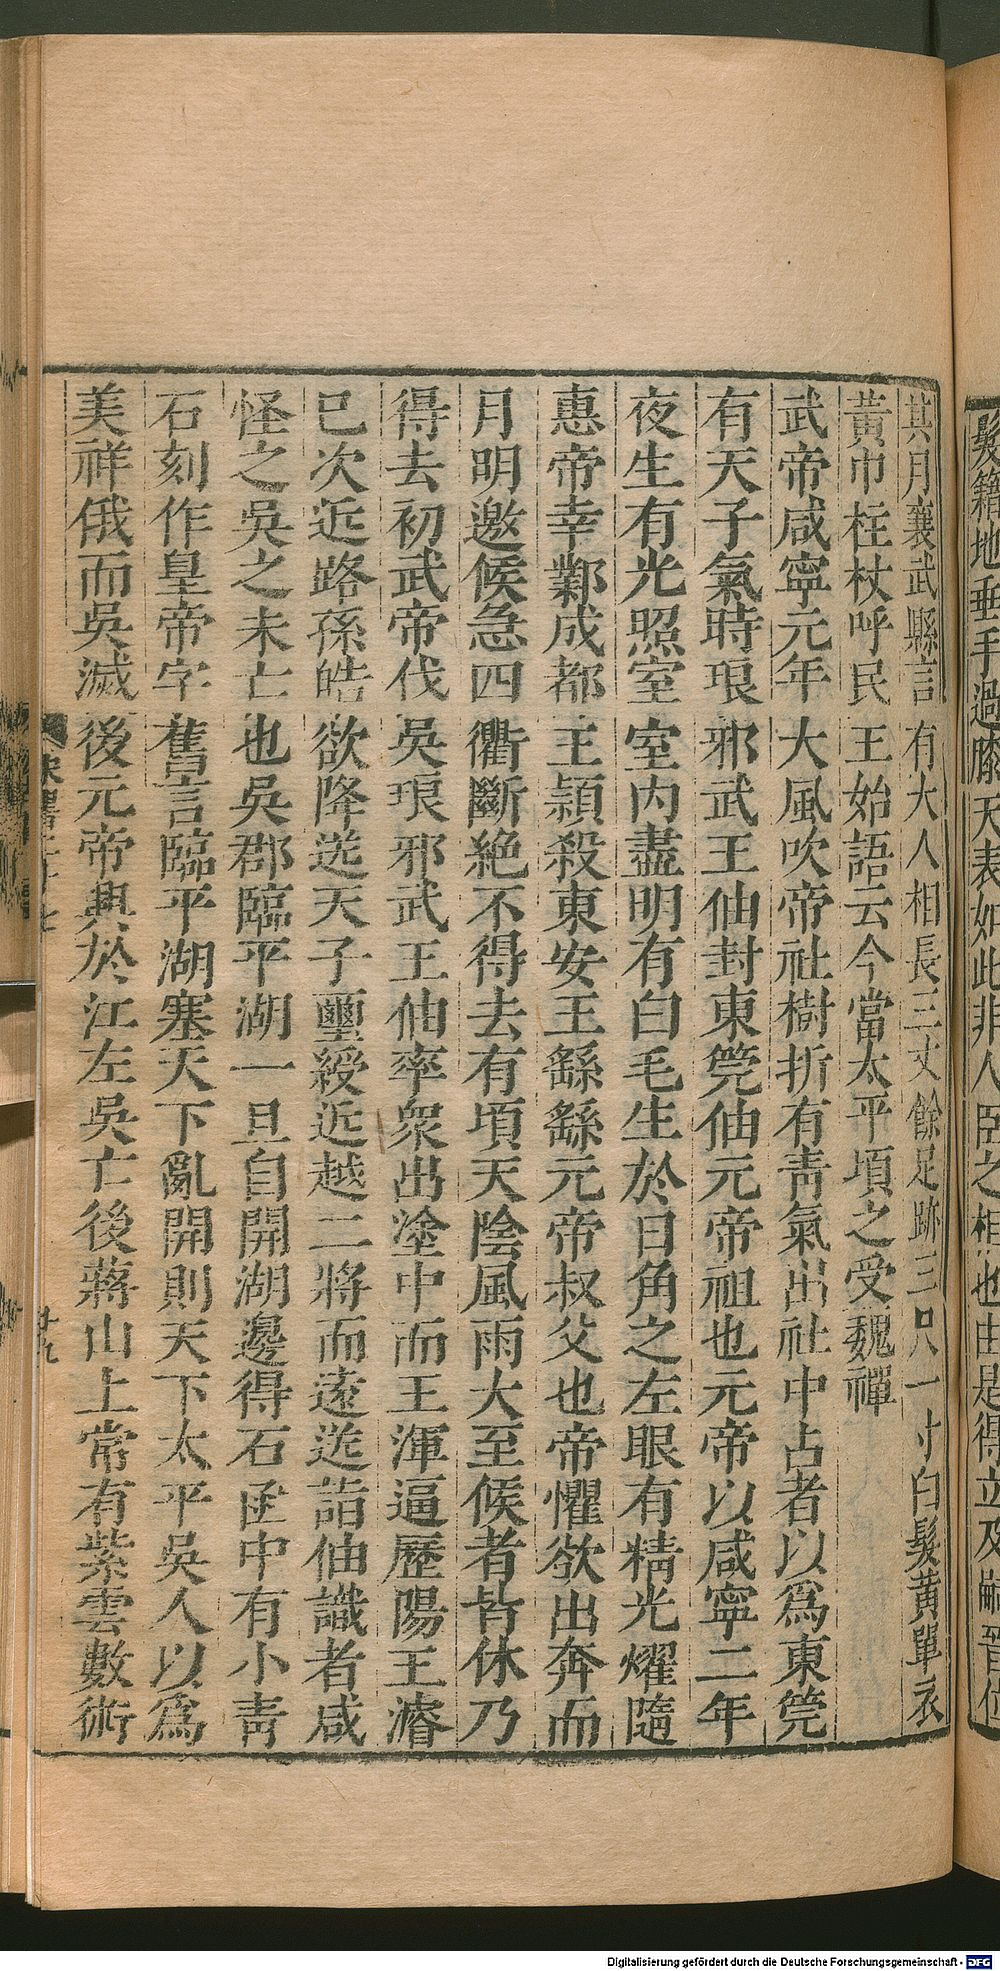 髮籍地垂手過膝天表如此非人臣之相也由是得立及嗣晉位
其月襄武縣言有大人相長三丈餘足跡三尺一寸白髮黃單衣
黃巾柱杖呼民王始語云今當太平頃之受魏禪
武帝咸寧元年大風吹帝社樹折有青氣出社中占者以爲東筦
有天子氣時琅邪武王伷封東筦伷元帝祖也元帝以咸寧二年
夜生有光照室室內盡明有白毛生於日角之左眼有精光燿隨
惠帝幸鄴成都王穎殺東安王繇繇元帝叔父也帝懼欲出奔而
月明邀候急四衢斷絕不得去有頃天陰風雨大至候者皆休乃
得去初武帝伐吳琅邪武王伷率衆出塗中而王渾逼歷陽王濬
已次近路孫皓欲降送天子璽綬近越二將而遠送詣伷識者咸
怪之吳之未亡也吳郡臨平湖一旦自開湖邊得石函中有小青
石刻作皇帝字舊言臨平湖塞天下亂開則天下太平吳人以爲
美祥俄而吳滅後元帝興於江左吳亡後蔣山上常有紫雲數術
宋書二十七
廿九
Digitalisierung gefördert durch die Deutsche Forschungsgemeinschaft - DFG